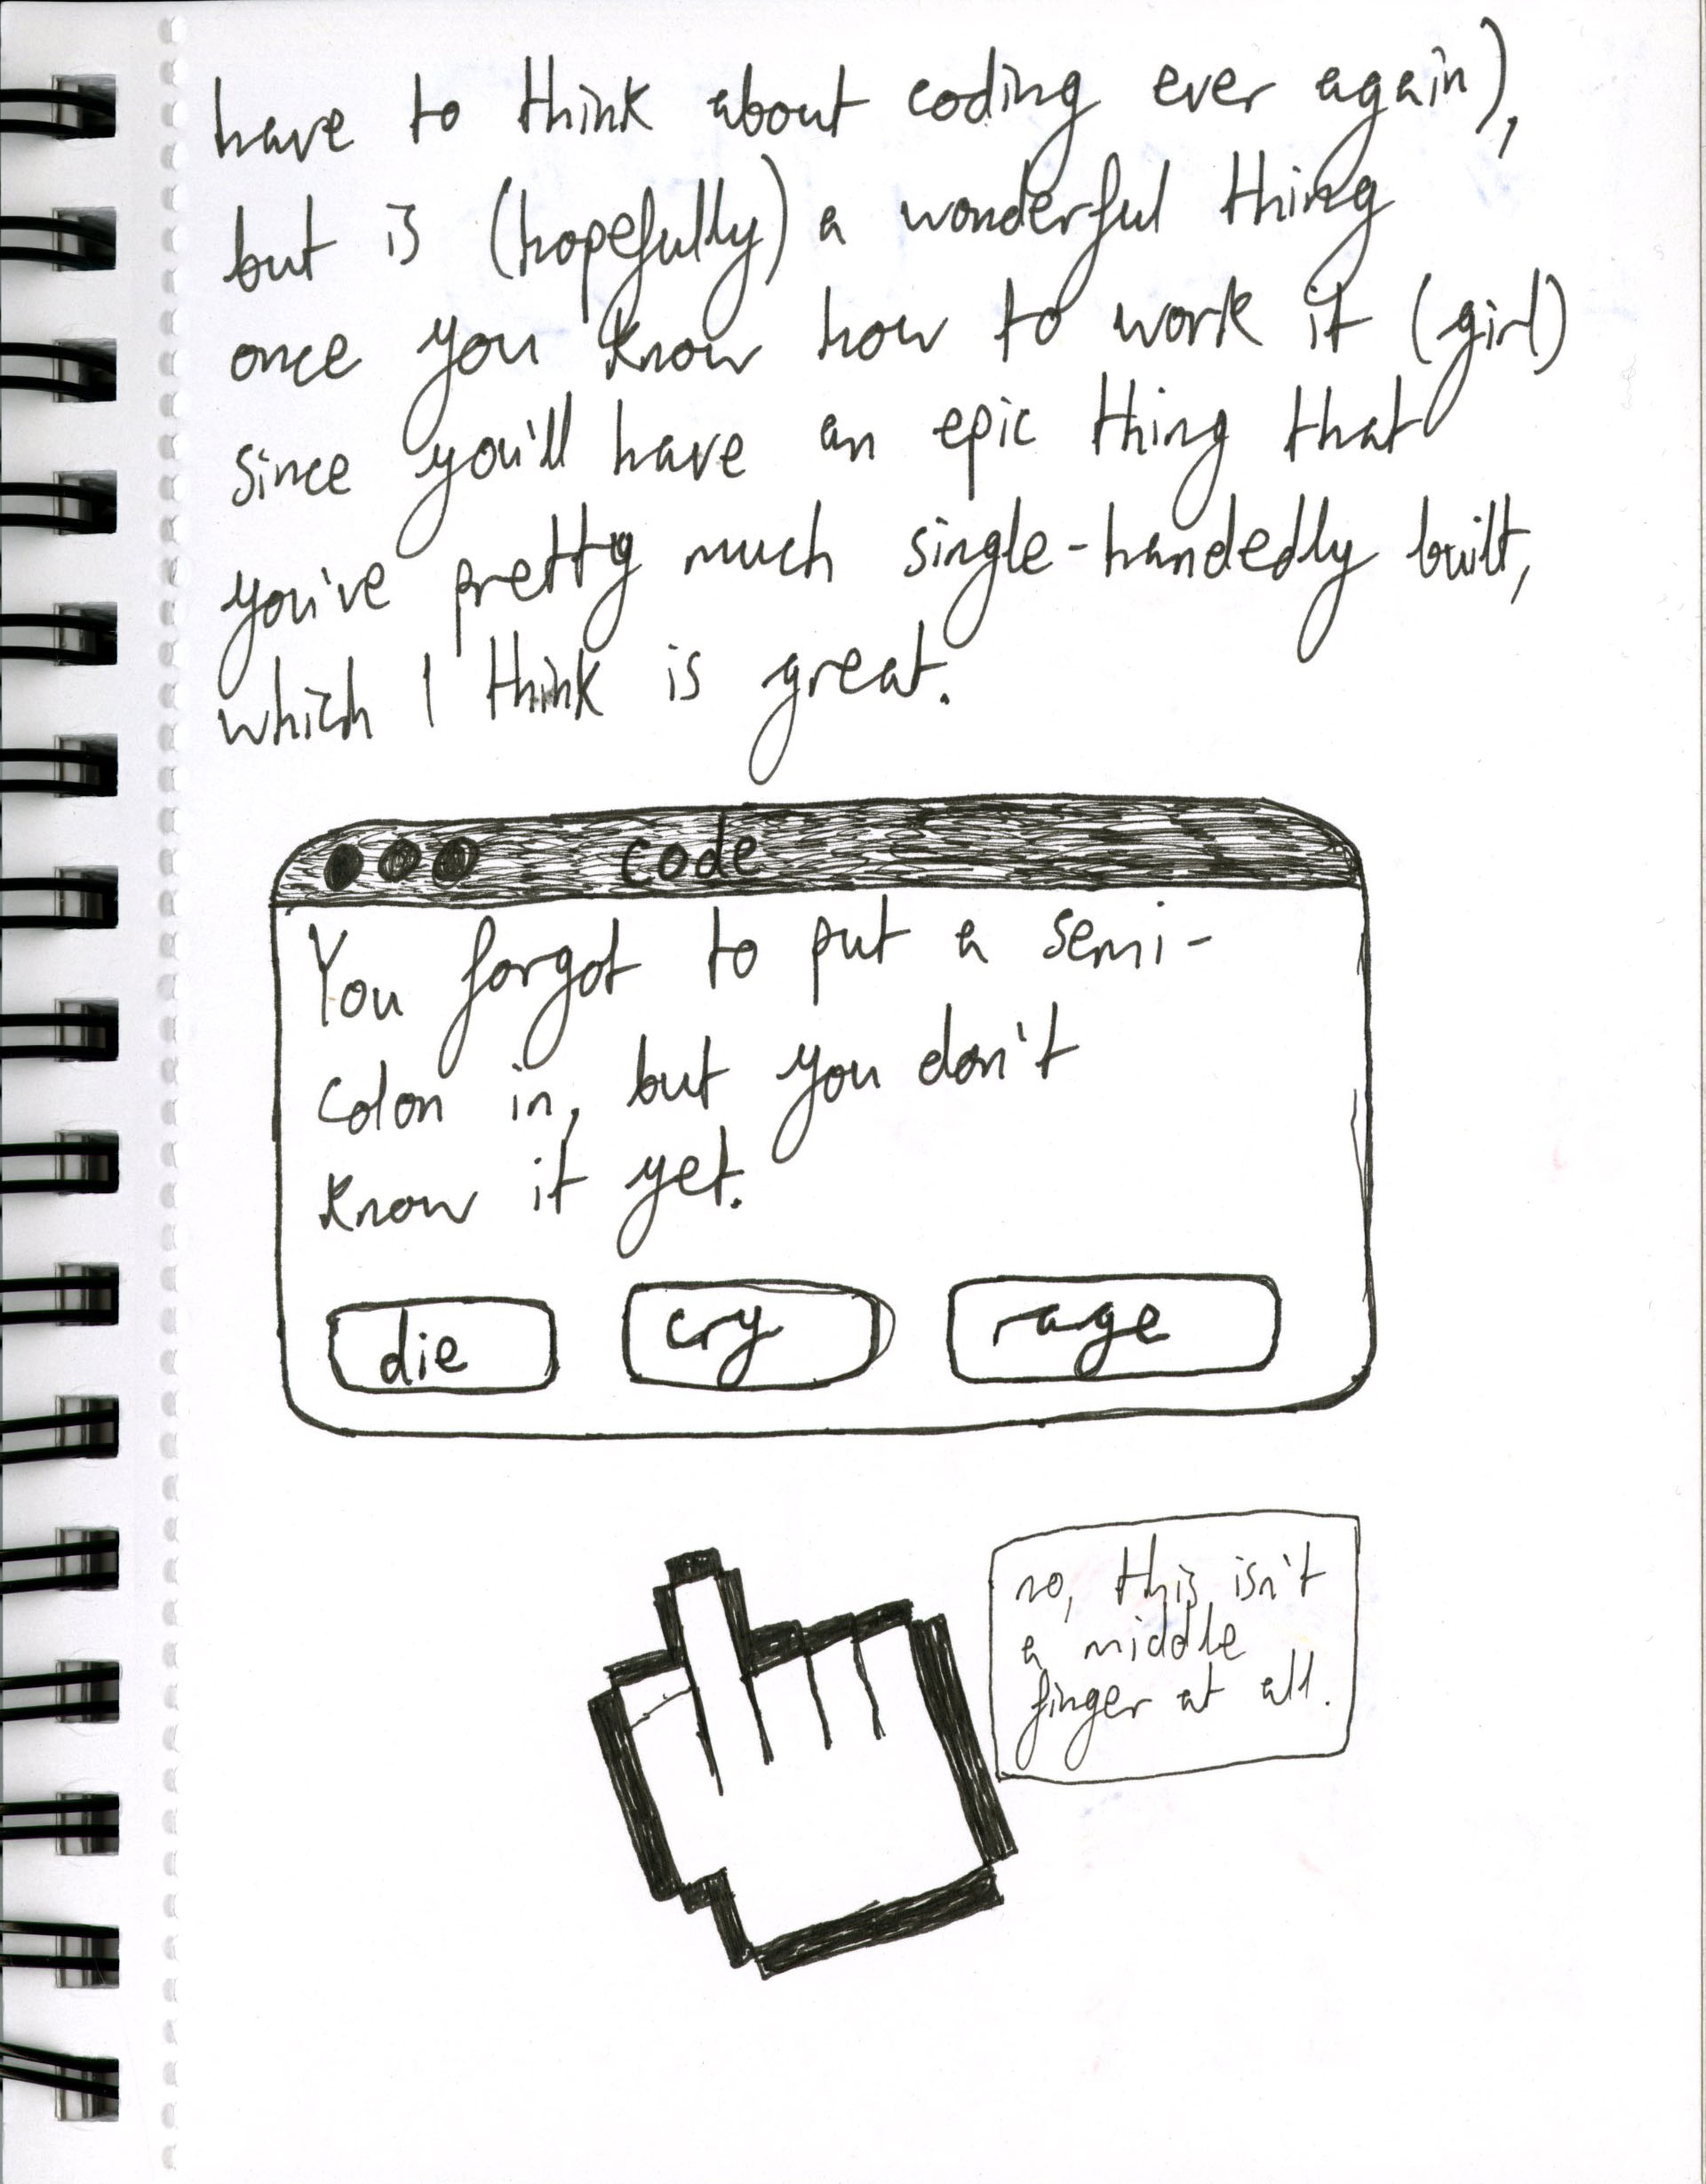 have to think about coding ever again),
but is (hopefully) a wonderful thing
once you know how to work it (girl)
since you'll have an epic thing that
you've pretty much single-handedly built,
which I think is great.
code
You forgot to put a semi-
colon in, but you don't
know it yet.
die
cry
rage
no, this isn't
a middle
finger at all.